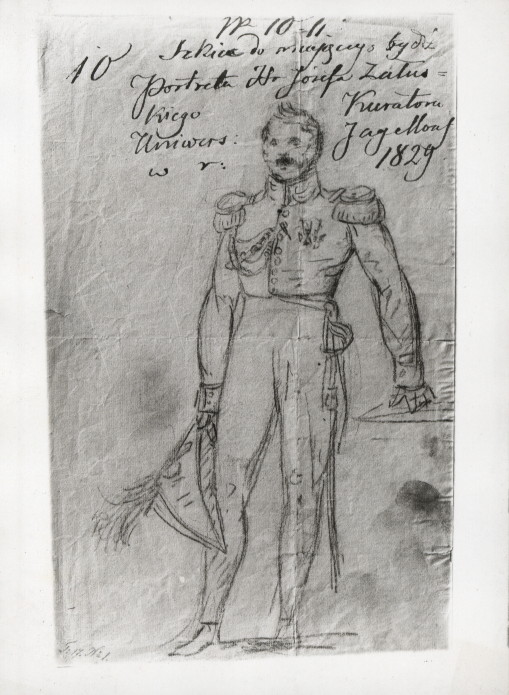 Nr 10-11.
10
Szkic do mającego bydź
Portretu Hr Józefa Załus=
kiego Kuratora
Uniwers: Jagelloń
w r: 1829